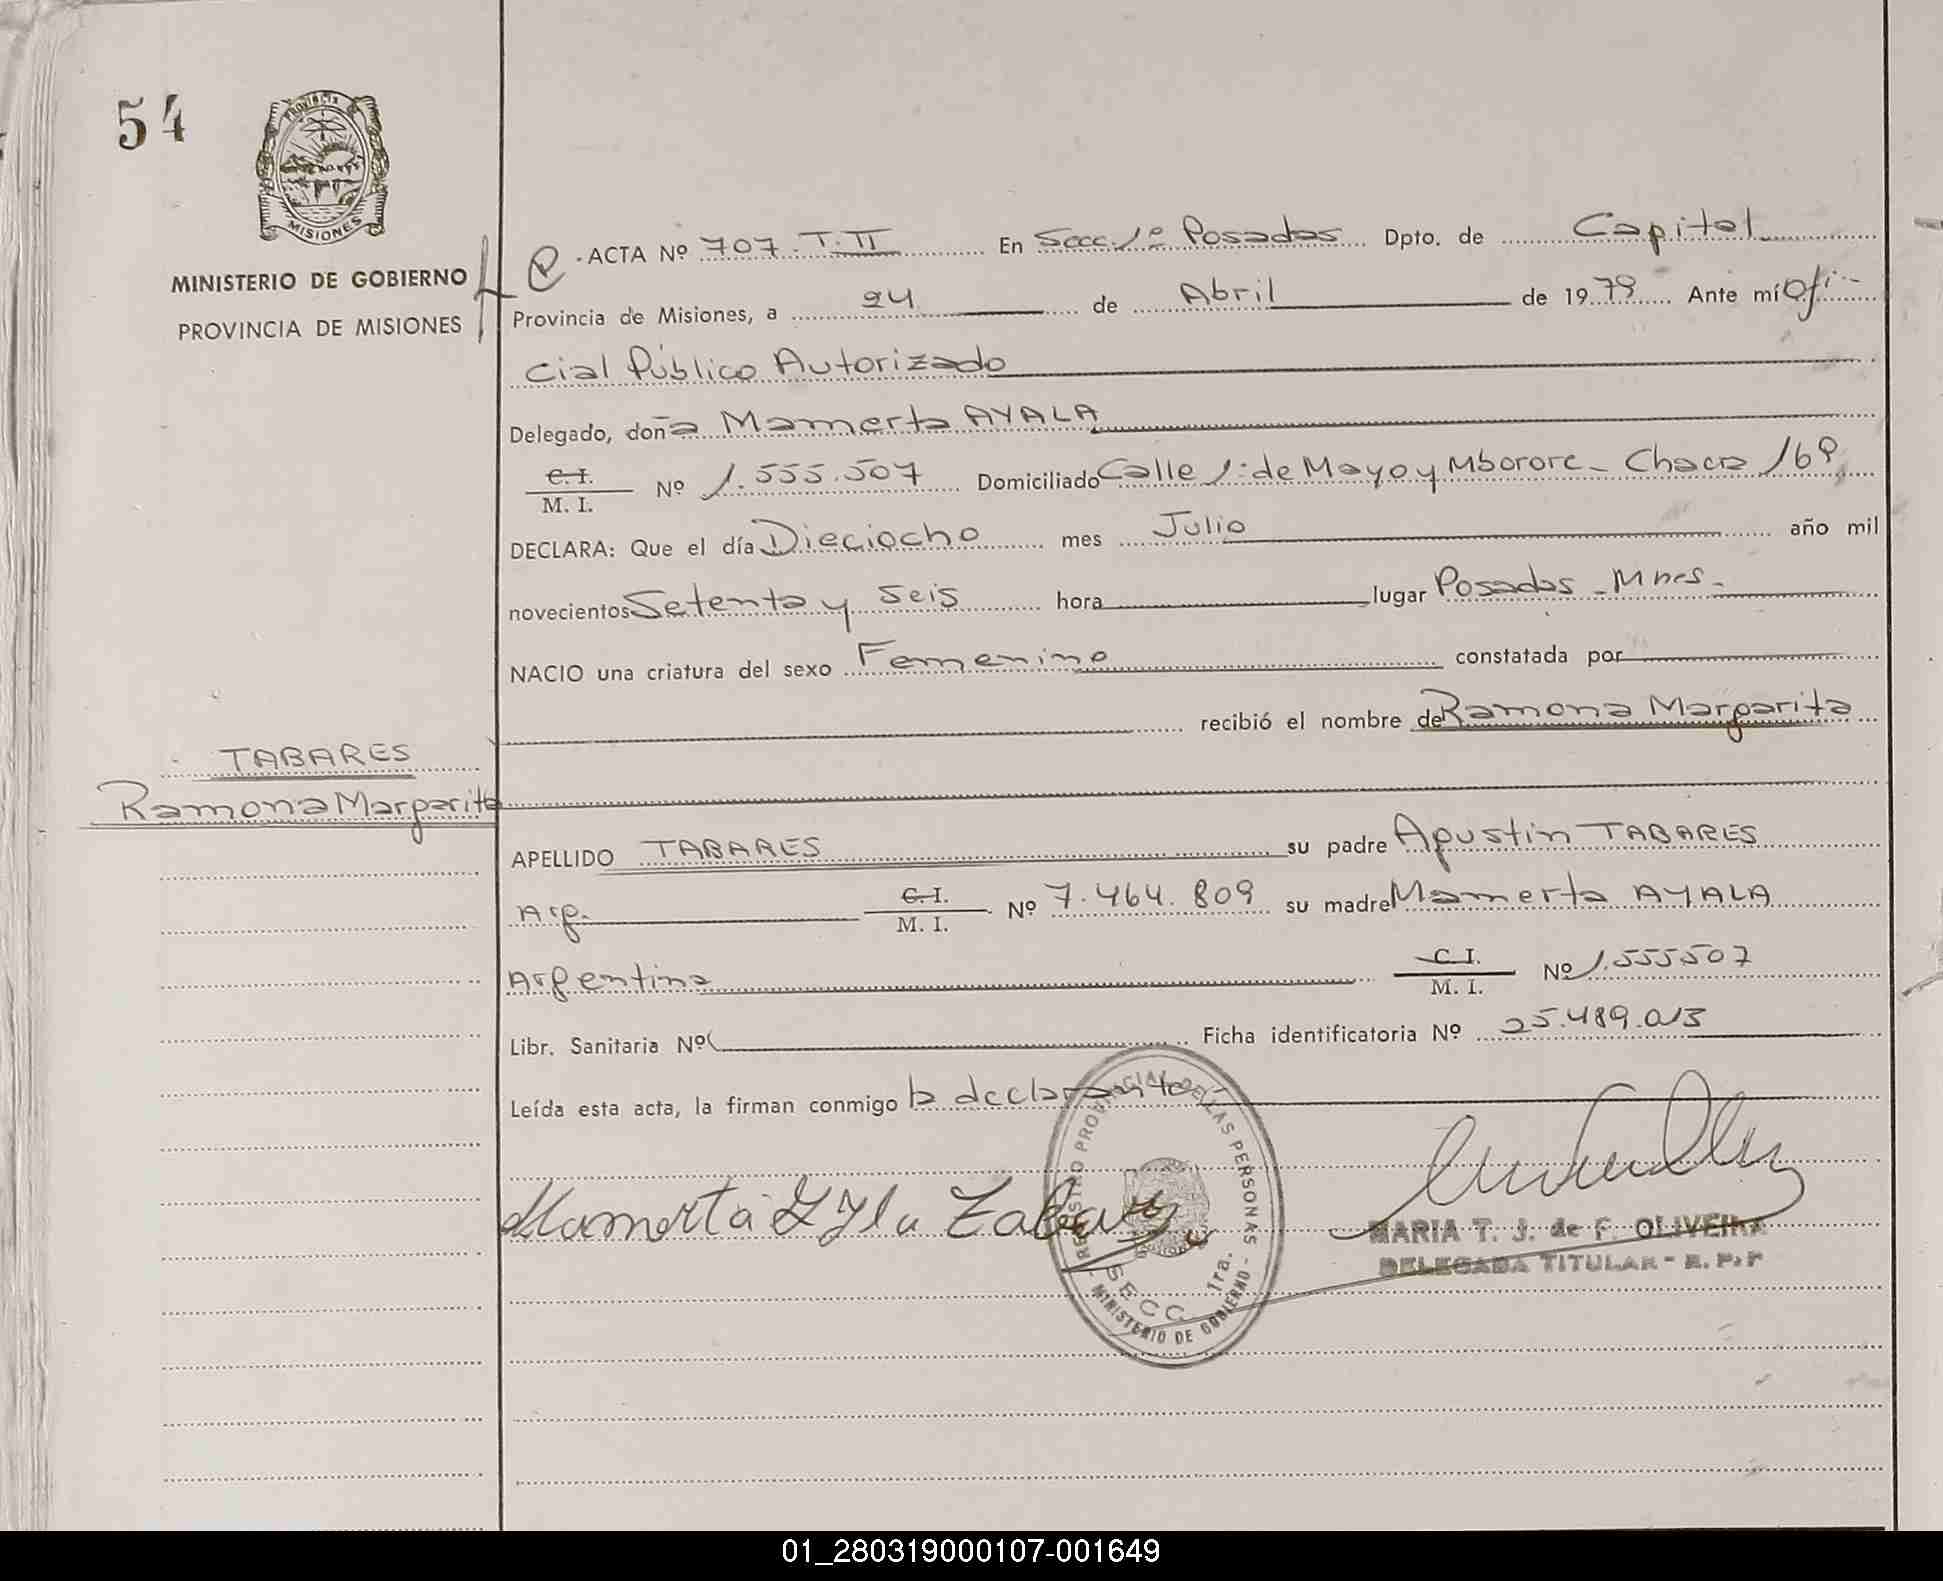 54
PROVINCIA
MISIONES
MINISTERIO DE GOBIERNO
PROVINCIA DE MISIONES
ACTA Nº 707. T. II En Secc. 1º Posadas Dpto. de Capital
Provincia de Misiones, a 24 de Abril de 1979 Ante mí Ofi-
cial Público Autorizado
Delegado, doña Mamerta AYALA
C. I.
M. I. Nº 1.555.507 Domiciliado Calle 1º de Mayo y Mborore - Chacra 169
DECLARA: Que el día Dieciocho mes Julio año mil
novecientos Setenta y Seis hora lugar Posadas - Mnes.
NACIO una criatura del sexo Femenino constatada por
recibió el nombre de Ramona Margarita
TABARES
Ramona Margarita
APELLIDO TABARES su padre Agustin TABARES
Arg. C. I.
M. I. Nº 7.464.809 su madre Mamerta AYALA
Argentina C. I.
M. I. Nº 1.555507
Libr. Sanitaria Nº Ficha identificatoria Nº 25.489.013
Leída esta acta, la firman conmigo la declarante
REGISTRO PROVINCIAL DE LAS PERSONAS
SECC. 1ra.
- MINISTERIO DE GOBIERNO -
Mamerta
MARIA T. J. de F. OLIVEIRA
DELEGADA TITULAR - R. P. P
01_280319000107-001649